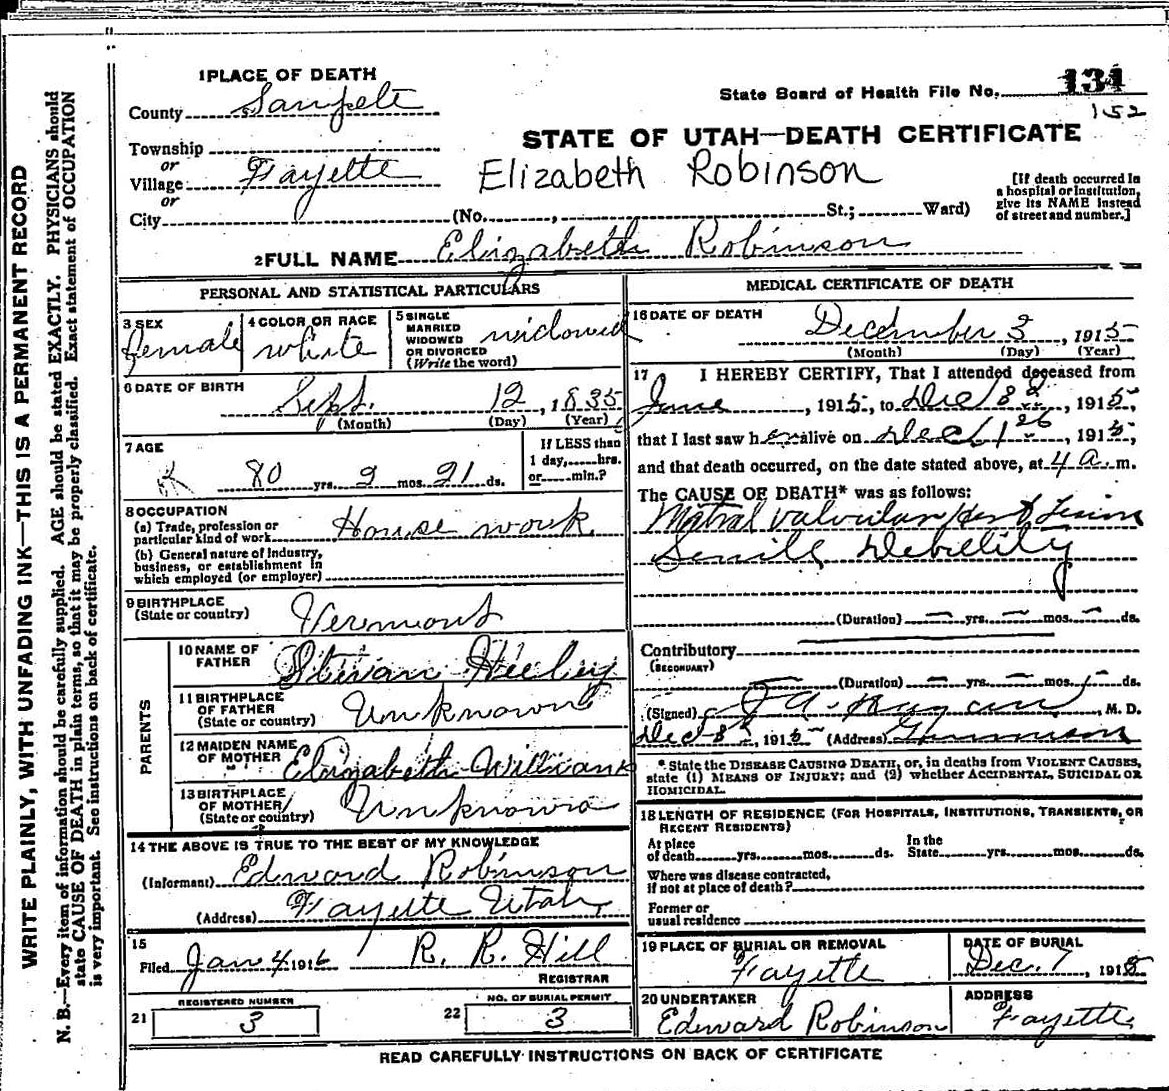 WRITE PLAINLY, WITH UNFADING INK—THIS IS A PERMANENT RECORD
N. B.—Every item of information should be carefully supplied. AGE should be stated EXACTLY. PHYSICIANS should
state CAUSE OF DEATH in plain terms, so that it may be properly classified. Exact statement of OCCUPATION
is very important. See instructions on back of certificate.
1 PLACE OF DEATH
County Sanpete
State Board of Health File No. 131
152
STATE OF UTAH—DEATH CERTIFICATE
Township
or
Village Fayette
or
City
Elizabeth Robinson
[If death occurred in
a hospital or institution,
give its NAME instead
of street and number.]
(No. , St.; Ward)
2 FULL NAME Elizabeth Robinson
PERSONAL AND STATISTICAL PARTICULARS
3 SEX
female
4 COLOR OR RACE
white
5 SINGLE
MARRIED
WIDOWED
OR DIVORCED
(Write the word)
widowed
6 DATE OF BIRTH
Sept. 12, 1835
(Month) (Day) (Year)
7 AGE
80 yrs. 2 mos. 21 ds.
If LESS than
1 day, hrs.
or min.?
8 OCCUPATION
(a) Trade, profession or
particular kind of work House work
(b) General nature of Industry,
business, or establishment in
which employed (or employer)
9 BIRTHPLACE
(State or country) Vermont
PARENTS
10 NAME OF
FATHER
11 BIRTHPLACE
OF FATHER
(State or country) Unknown
12 MAIDEN NAME
OF MOTHER Elizabeth
13 BIRTHPLACE
OF MOTHER
(State or country) Unknown
14 THE ABOVE IS TRUE TO THE BEST OF MY KNOWLEDGE
(Informant) Edward Robinson
(Address) Fayette Utah
15
Filed Jan 4 1916 R. R. Hill
REGISTRAR
21 REGISTERED NUMBER
3
22 NO. OF BURIAL PERMIT
3
MEDICAL CERTIFICATE OF DEATH
16 DATE OF DEATH
December 3, 1915
(Month) (Day) (Year)
17 I HEREBY CERTIFY, That I attended deceased from
June, 1915, to Dec, 1915,
that I last saw her alive on Dec 1, 1915,
and that death occurred, on the date stated above, at 4 a. m.
The CAUSE OF DEATH* was as follows:
Mitral valvular
Senile Debility
(Duration) — yrs. — mos. — ds.
Contributory
(SECONDARY)
(Duration) — yrs. — mos. ds.
(Signed) , M. D.
Dec 8, 1915 (Address) Gunnison
* State the DISEASE CAUSING DEATH, or, in deaths from VIOLENT CAUSES,
state (1) MEANS OF INJURY; and (2) whether ACCIDENTAL, SUICIDAL OR
HOMICIDAL.
18 LENGTH OF RESIDENCE (FOR HOSPITALS, INSTITUTIONS, TRANSIENTS, OR
RECENT RESIDENTS)
At place
of death yrs. mos. ds.
In the
State yrs. mos. ds.
Where was disease contracted,
if not at place of death?
Former or
usual residence
19 PLACE OF BURIAL OR REMOVAL
Fayette
DATE OF BURIAL
Dec. 7, 1915
20 UNDERTAKER
Edward Robinson
ADDRESS
Fayette
READ CAREFULLY INSTRUCTIONS ON BACK OF CERTIFICATE